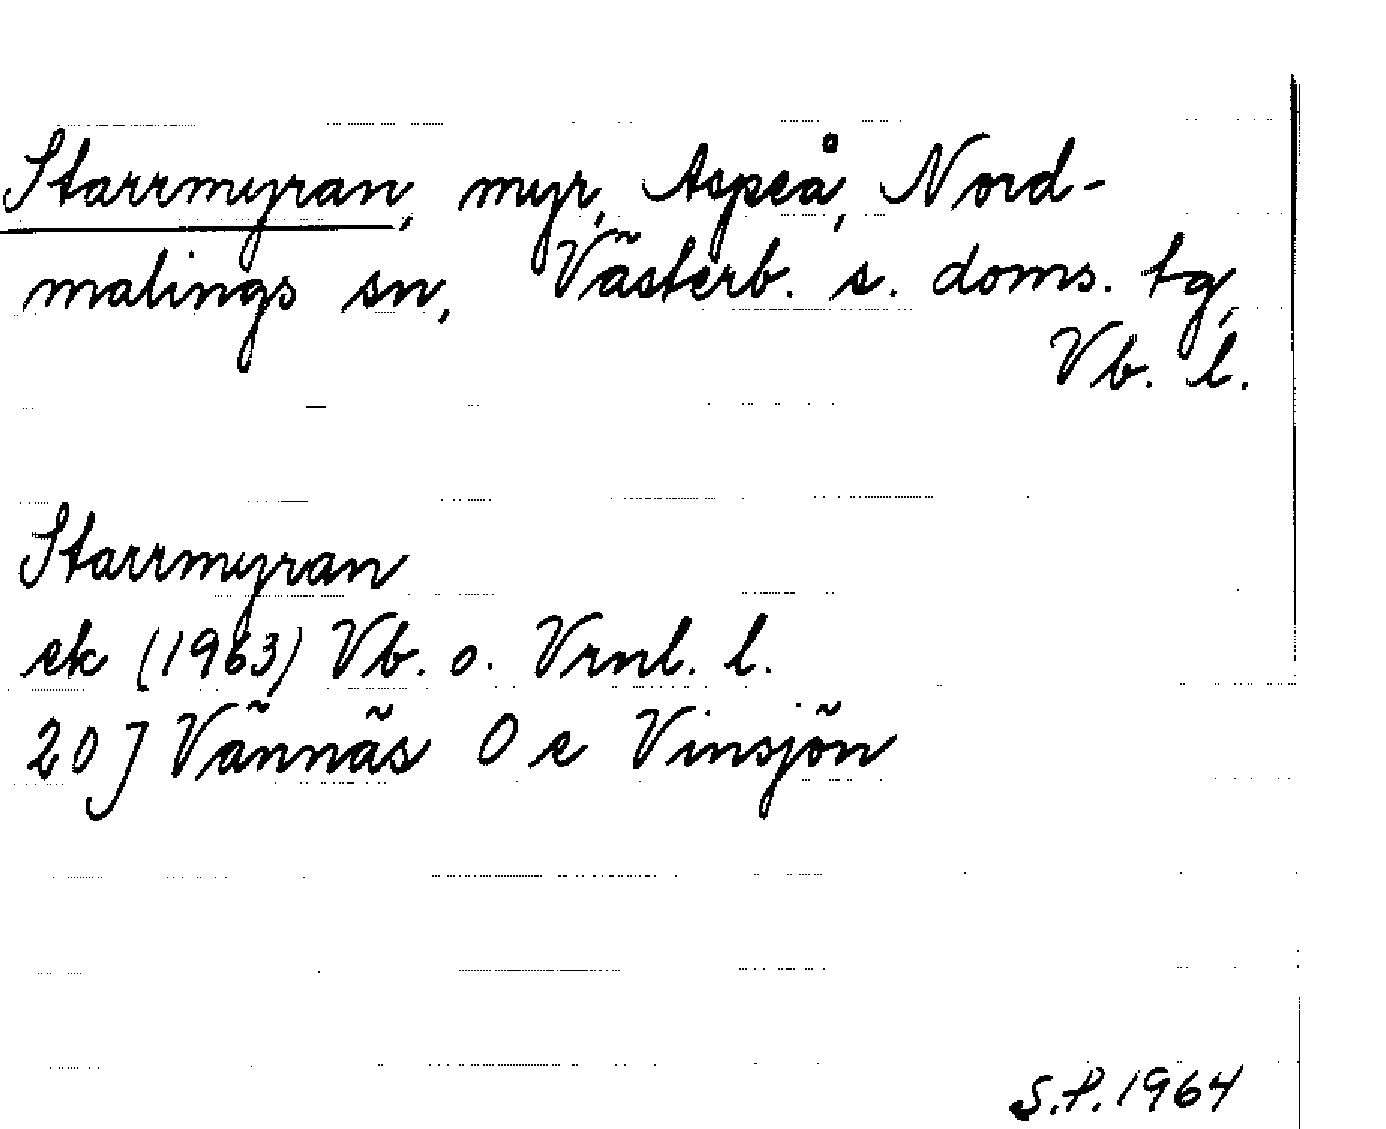 Starrmyran, myr, Aspeå, Nord-
malings sn, Västerb. s. doms. tg,
Vb. l.
Starrmyran
ek (1963) Vb. o. Vrnl. l.
20 J Vännäs O e Vinsjön
S.P. 1964